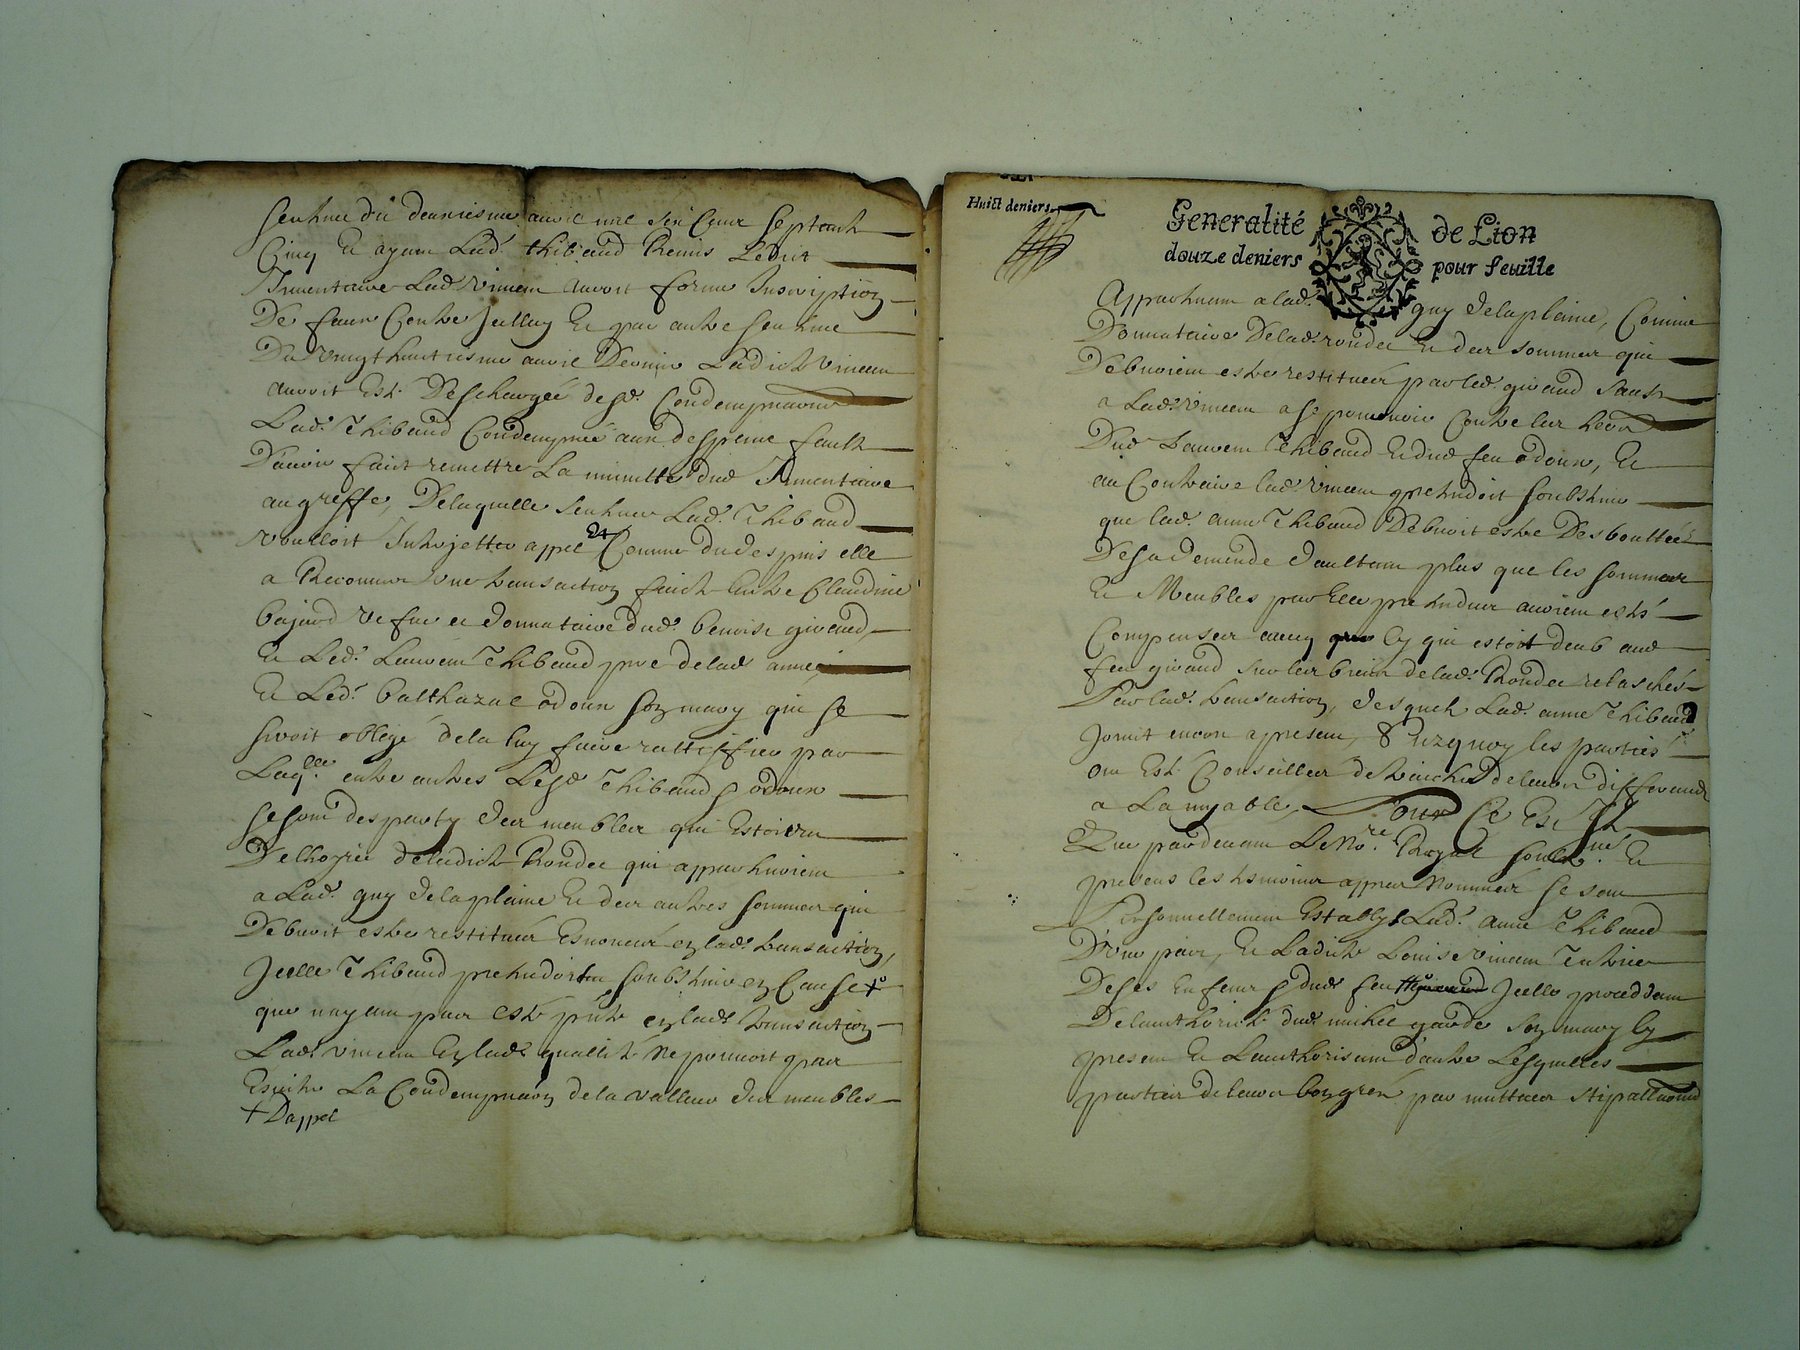 sentence du deuxiesme avril mil six cent septante
Cinq Et ayant Lad. thibaud Remis Ledit
Inventaire Lad. vincent auroit formé Inscription
De faux Contre Jcelluy Et par autre sentence
Du vingt huictiesme avril Dernier Ladicte vincent
auroit Esté Deschargée desd. Condempnations
Lad. Thibaud Condempnée aux despens faulte
D'avoir faict remettre La minutte dud Inventaire
au greffe, De laquelle sentence Lad. Thibaud
vouloit Interjetter appel Et Comme du despuis elle
a Recouvré une transaction faicte Entre Claudine
bajard vefve et donnataire dud. benoist giraud,
Et Led. Laurent Thibaud pere de lad anne,
Et Led. balthazac odoux son mary qui se
seroit obligé de la luy faire rattiffier par
Laqlle. entre autres Lesd Thibaud & odoux
se sont despartis des meubles qui Estoient
De lhoyrie de ladicte Rondee qui appartenoient
a Lad. guy delaplaine Et des autres sommes qui
Debvoit estre restitués Enoncés en lad. transaction,
Jcelle Thibaud pretendoit soubstenir en Cause +
que nayant pas esté partie en lad. transaction
Lad. vincent En lad. quallité Ne pouvoit pas
Esviter La Condempnaon de la valleur des meubles
+ Dappel
Huict deniers.
Generalité de Lion
douze deniers pour feuille
Appartenant a lad. guy delaplaine, Comme
Donnataire De lad. rondee Et des sommes qui
Debvoient estre restituées par led. giraud sauf
a Lad. vincent a se pourvoir Contre les heoirs
Dud Laurent Thibaud Et dud feu odoux, Et
au Contraire lad. vincent pretendoit soubstenir
que lad. anne Thibaud Debvoit estre Desbouttée
De sa demande d'aultant plus que les sommes
Et Meubles par Elle pretendus auroient esté
Compensés avecq ce qui estoit deub aud
feu giraud sur les biens de lad. Rondee relaschés
Par lad. transaction, desquels Lad. anne Thibaud
Jouit encore a present, & Surquoy les parties
ont Esté Conseillées de traicter de leurs differents
a Lamyable, Pour Ce Est Jl
Que pardevant Le Nore. Royal soubzne. Et
presens les tesmoins apres Nommés se sont
Personnellement Establyes Lad. anne Thibaud
D'une part, Et Ladicte Louise vincent Tutrice
De ses Enfens & dud feu giraud Jcelle proceddant
De lauthorité dud. michel garde son mary Cy
present Et Lauthorisant d'autre Lesquelles
parties de leurs bon gré par mutuelles stipallaons